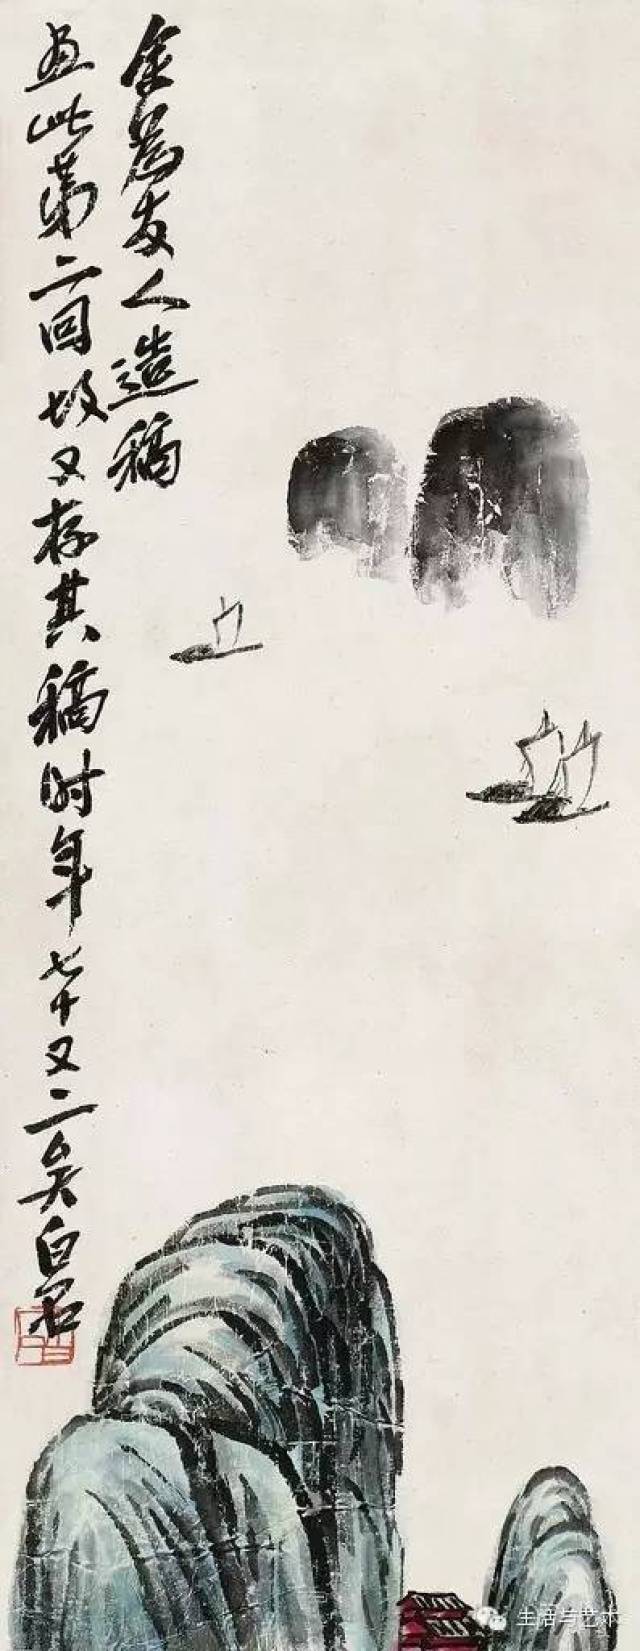 余為友人造稿
画此第二回故又存其稿时年七十又二矣白石
生活与艺术